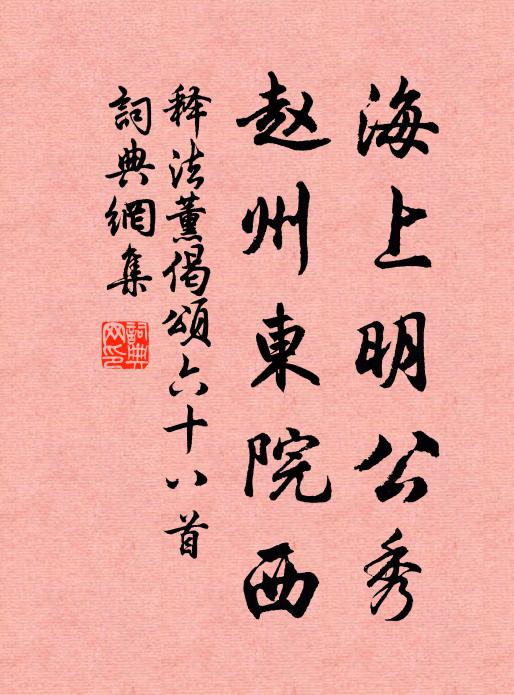 海上明公秀
赵州東院西
释法薰偈頌六十八首
詞典網集
詞典網印